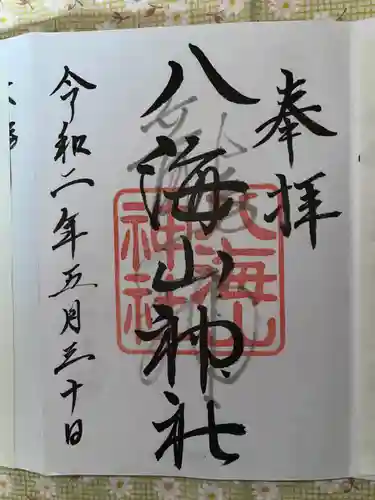 奉拝
八海山神社
八海山
神社
令和二年五月三十日